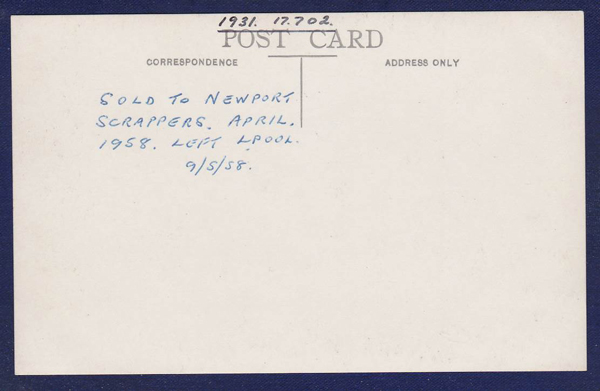 1931. 17.702.
POST CARD
CORRESPONDENCE
ADDRESS ONLY
SOLD TO NEWPORT
SCRAPPERS. APRIL.
1958. LEFT LPOOL.
9/5/58.